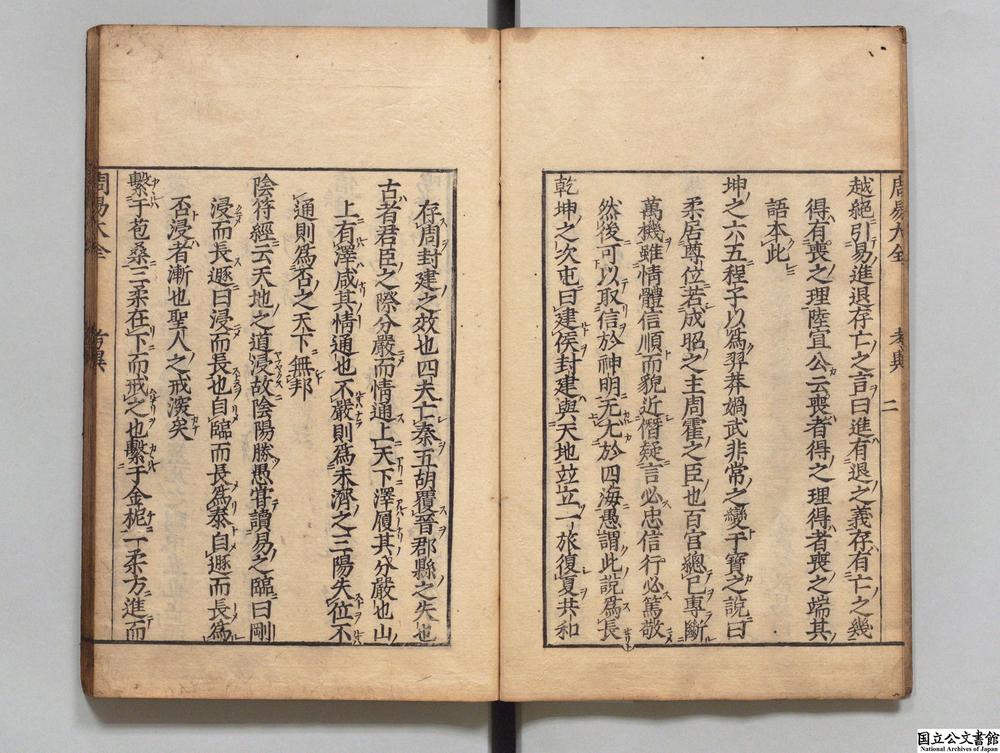 周易大全 考異 二
越絕引易進退存亡之言曰進有退之義存有亡之幾
得有喪之理陸宣公云喪者得之理得者喪之端其
語本此
坤之六五程子以爲羿莽媧武非常之變干寶之說曰
柔居尊位若成昭之主周霍之臣也百官總已專斷
萬機雖情體信順而貌近僭疑言必忠信行必篤敬
然後可以取信於神明无尤於四海愚謂此說爲長
乾坤之次屯曰建侯封建與天地竝立一旅復夏共和
存周封建之效也四夫亡秦五胡覆晉郡縣之失也
古者君臣之際分嚴而情通上天下澤履其分嚴也山
上有澤咸其情通也不嚴則爲未濟之三陽失位不
通則爲否之天下無邦
陰符經云天地之道浸故陰陽勝愚嘗讀易之臨曰剛
浸而長遯曰浸而長也自臨而長爲泰自遯而長爲
否浸者漸也聖人之戒深矣
繫于苞桑三柔在下而戒之也繫于金柅一柔方進而
周易大全 考異
国立公文書館
National Archives of Japan